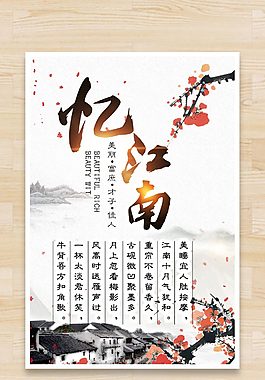 忆江南
美丽·富庶·才子·佳人
BEAUTIFUL RICH
BEAUTY WIT
美曝宜人胜按摩
江南十月气犹和
重帘不卷留香久
古砚微凹聚墨多
月上忽看梅影出
风高时送雁声过
一杯太淡君休笑
牛背吾方扣角歌